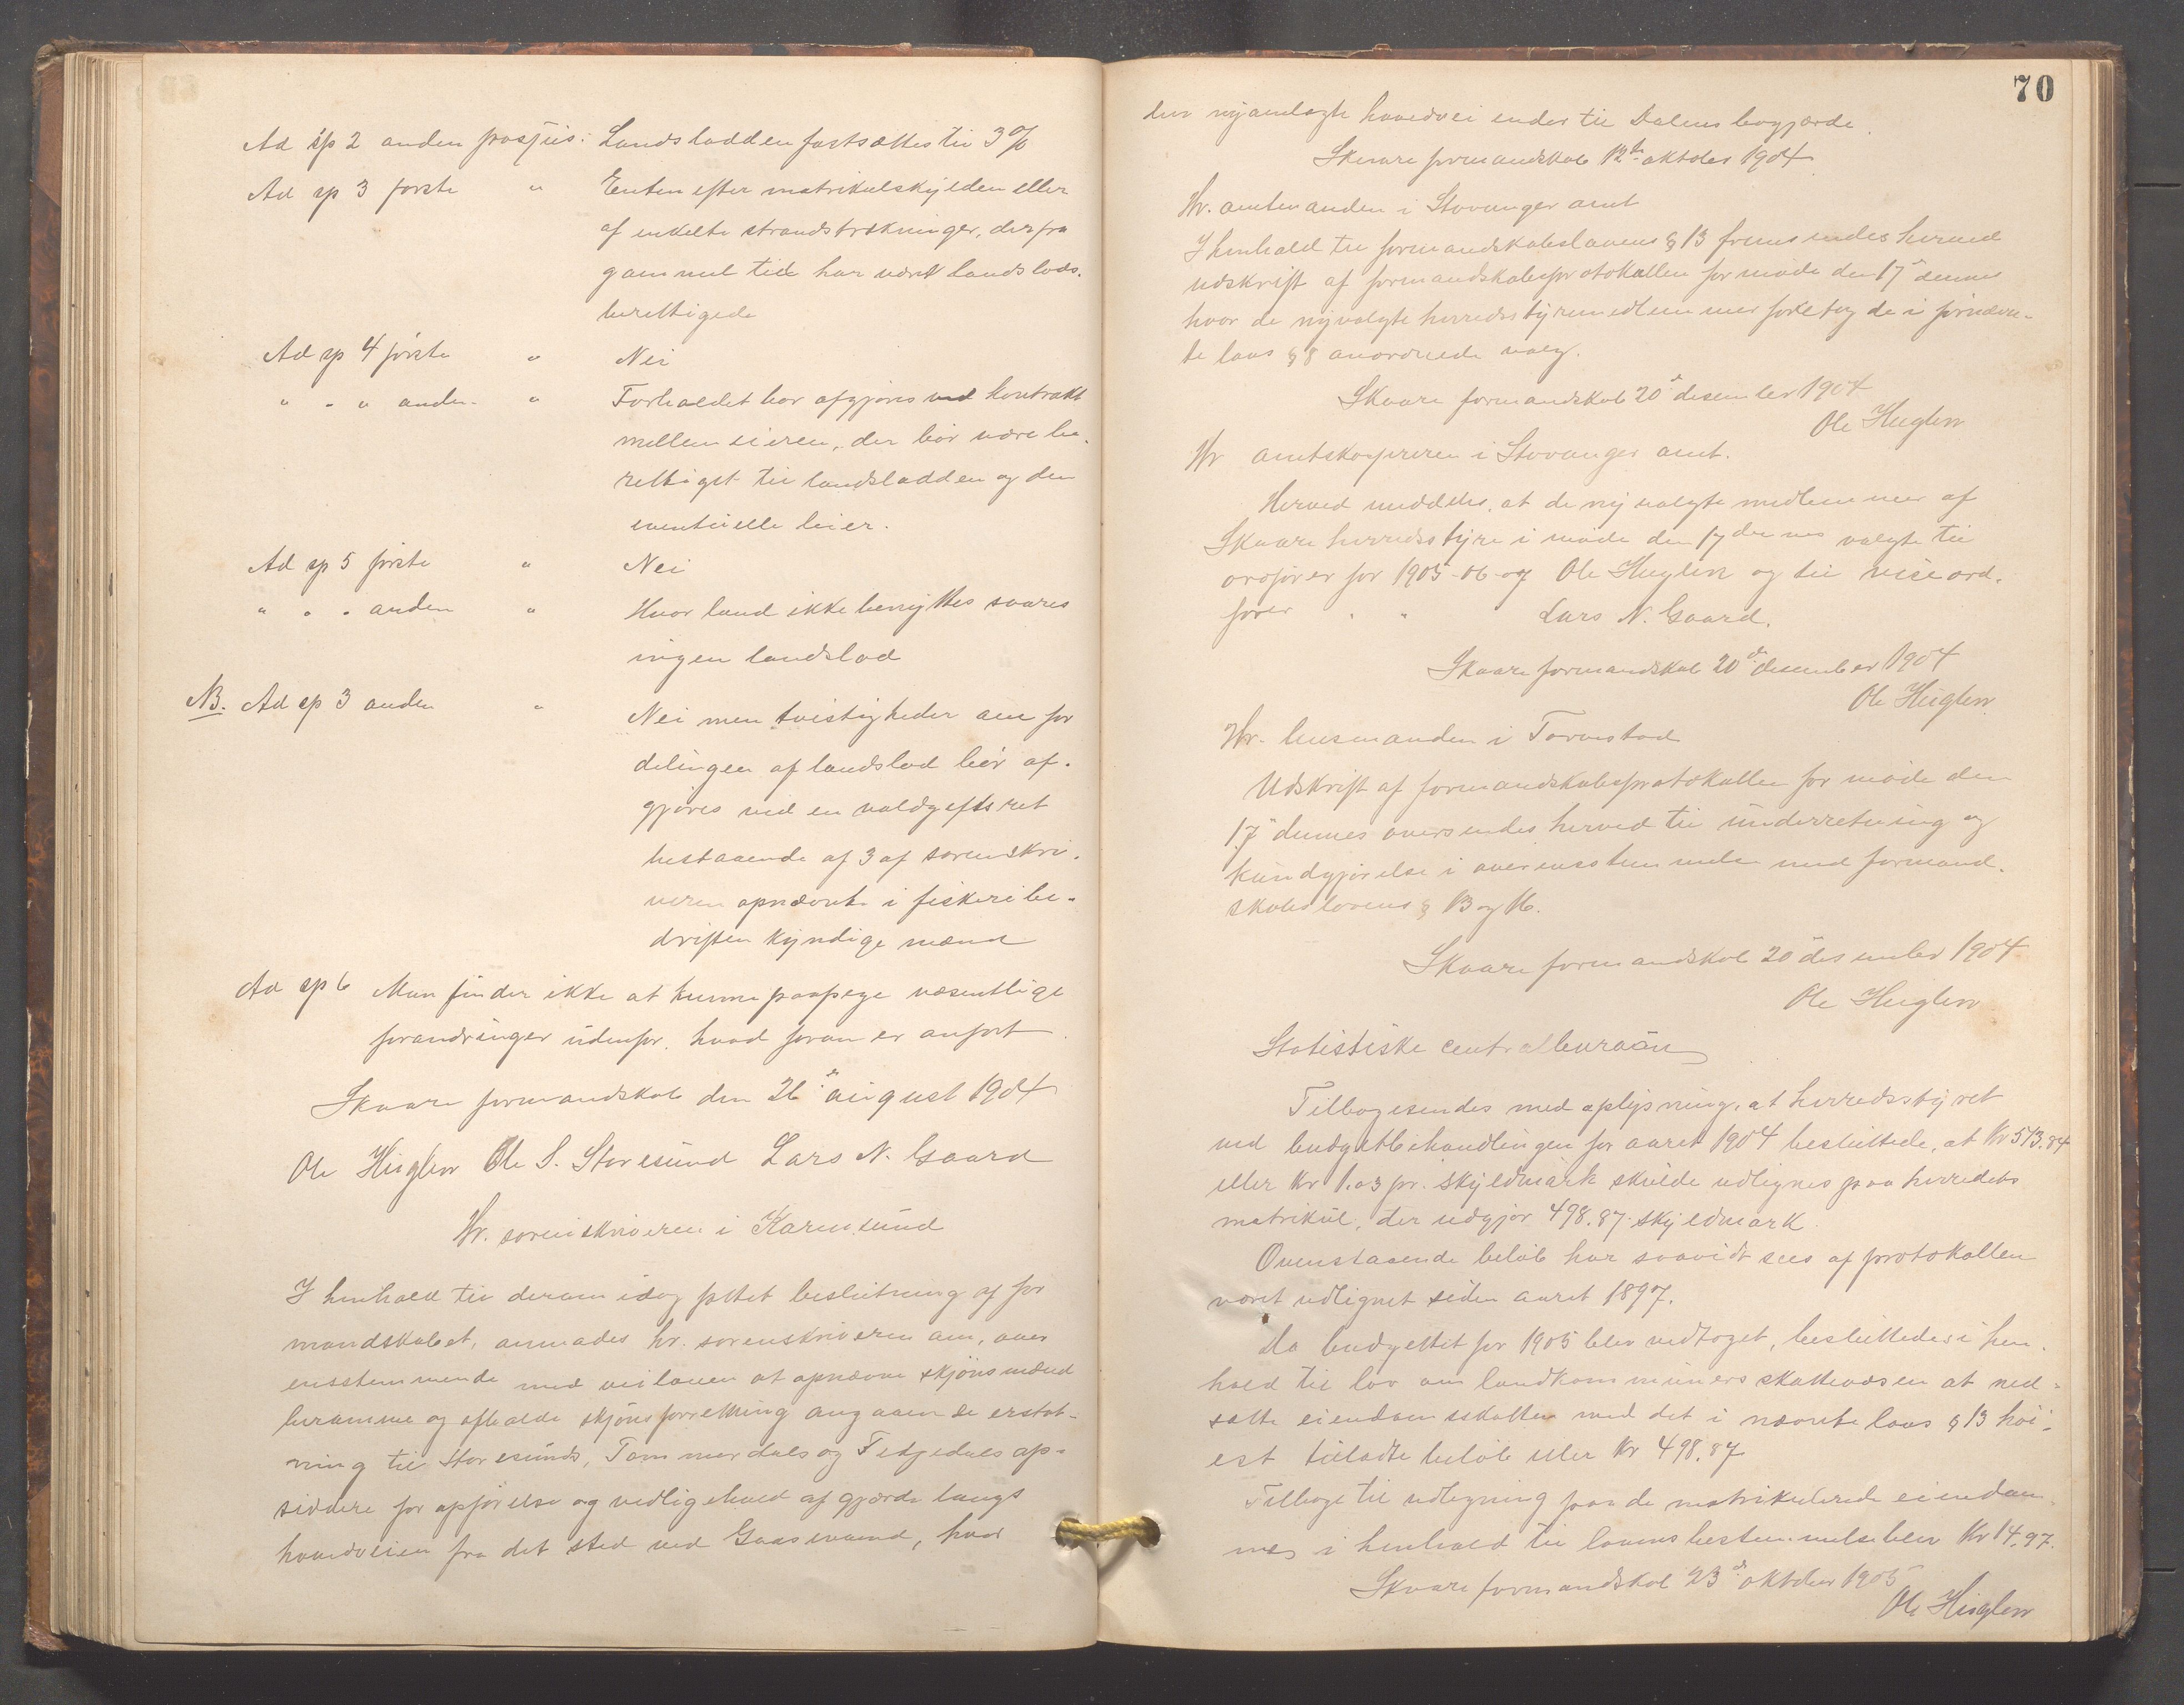 Ad sp 2 anden passus: Landslodden fastsættes til 3 %
Ad sp 3 første " Enten efter matrikulskylden eller
af enkelte strandstrækninger, der fra
gammel tid har været landslods-
berettigede
Ad sp 4 første " Nei
" " " anden " Forholdet bør afgjøres ved kontrakt
mellem eieren, der bør være be-
rettiget til landslodden og den
eventuelle leier.
Ad sp 5 første " Nei
" " " anden " Hvor land ikke benyttes svares
ingen landslod
NB. Ad sp 3 anden " Nei men tvistigheder om for
delingen af landslod bør af-
gjøres ved en voldgiftsret
bestaaende af 3 af sorenskri-
veren opnævnte i fiskeribe-
driften kyndige mænd
Ad sp 6 Man finder ikke at kunne paapege væsentlige
forandringer udenfor hvad foran er anført
Skaare formandskab den 26de august 1904
Ole Huglen Ole S. Storesund Lars N. Gaard
Hr. sorenskriveren i Karmsund
I henhold til derom idag fattet beslutning af for
mandskabet, anmodes hr. sorenskriveren om, over
ensstemmende med veiloven at opnævne skjønsmænd
beramme og afholde skjønsforretning angaaende erstat-
ning til Storesunds, Tommerdals og opsiddere
for opførelse og vedligehold af gjærde langs
hovedveien fra det sted ved Gaasevand, hvor
70
den nyanlagte hovedvei ender til Dalens bøgjærde.
Skaare formandskab 12te oktober 1904
Hr. amtmanden i Stavanger amt
I henhold til formandskabslovens § 13 fremsendes herved
udskrift af formandskabsprotokollen for møde den 17de dennes
hvor de nyvalgte herredsstyremedlemmer foretog de i førnævn-
te lovs § 8 anordnede valg.
Skaare formandskab 20de desember 1904
Ole Huglen
Hr amtskasereren i Stavanger amt.
Herved meddeles, at de nyvalgte medlemmer af
Skaare herredsstyre i møde den 17 dennes valgte til
ordfører for 1905-06-07 Ole Huglen og til viseord-
fører " " Lars N. Gaard.
Skaare formandskab 20de desember 1904
Ole Huglen
Hr. lensmanden i Torvestad
Udskrift af formandskabsprotokollen for møde den
17de dennes oversendes herved til underretning og
kundgjørelse i overensstemmelse med formand-
skabslovens § 13 og 16.
Skaare formandskab 20de desember 1904
Ole Huglen
Statistiske centralbureau
Tilbagesendes med oplysning, at herredsstyret
ved budgetbehandlingen for aaret 1904 besluttede, at Kr 513.84
eller Kr 1.03 pr. skyldmark skulde udlignes paa herredets
matrikul, der udgjør 498.87 skyldmark.
Ovenstaaende beløb har saavidt sees af protokollen
været udlignet siden aaret 1897.
Da budgettet for 1905 blev vedtaget, besluttedes i hen-
hold til lov om landkommuners skattevæsen at ned-
sætte eiendomsskatten med det i nævnte lovs § 13 høi-
est tilladte beløb eller Kr 498.87
Tilbage til udligning paa de matrikulerede eiendom-
me i henhold til lovens bestemmelse blev Kr 14.97.
Skaare formandskab 23de oktober 1905
Ole Huglen